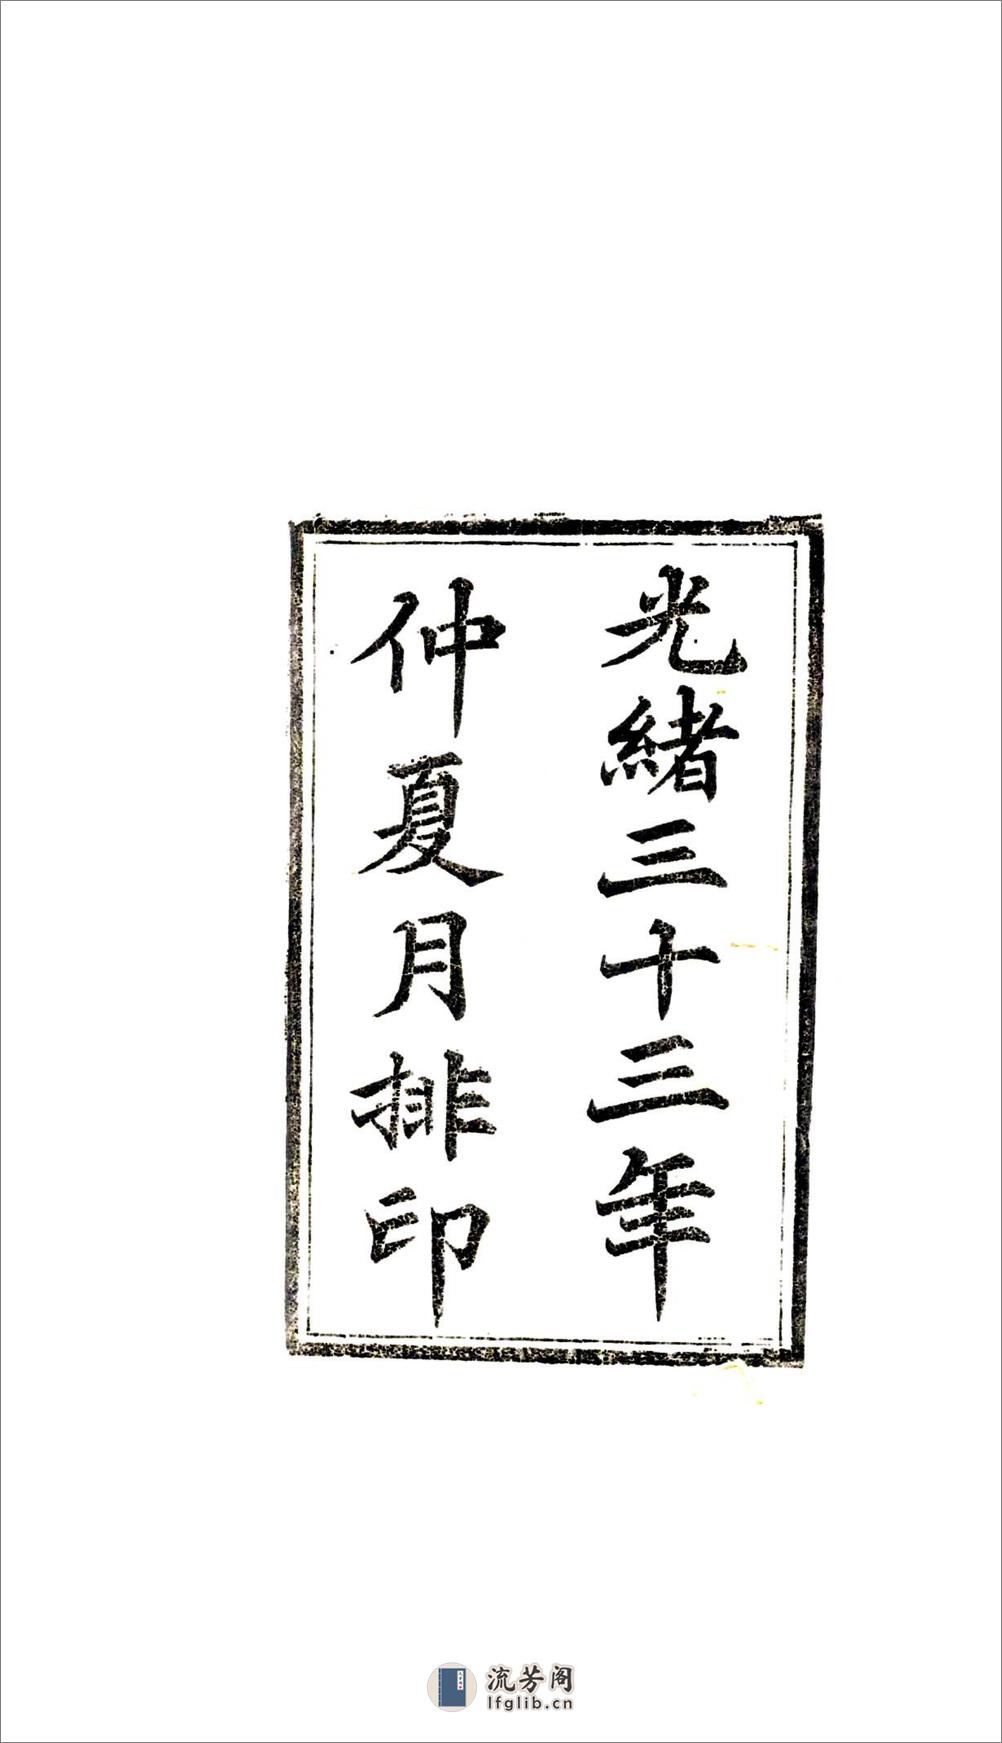 光緒三十三年
仲夏月排印
流芳阁
lfglib.cn